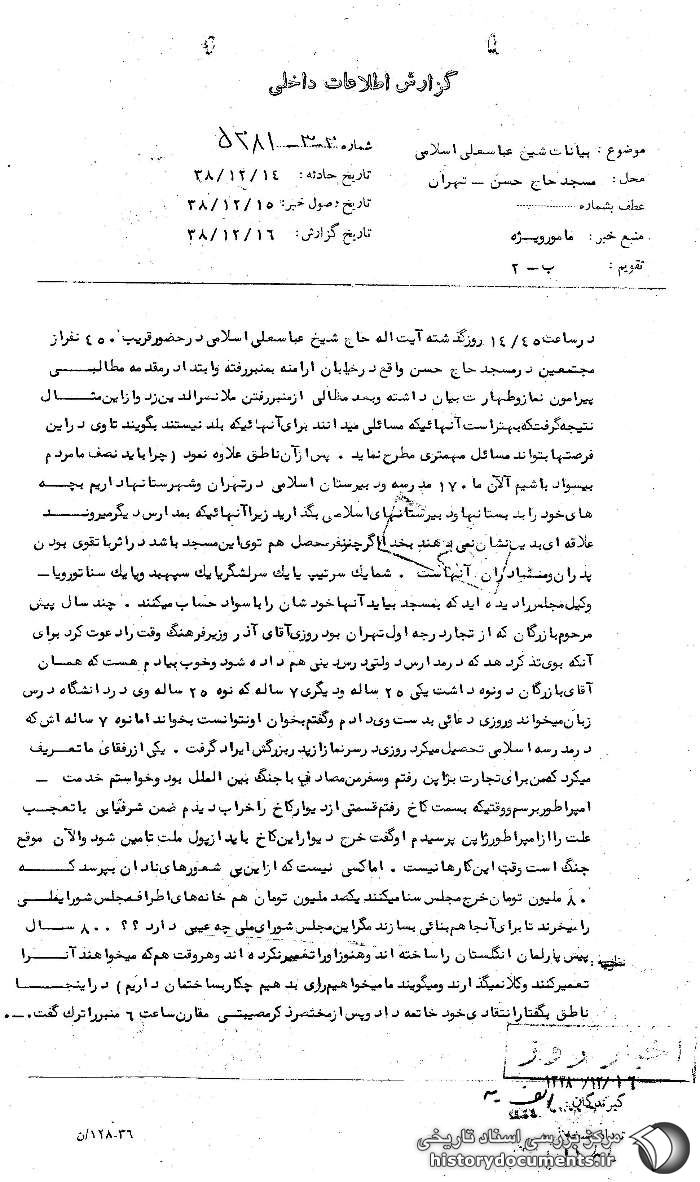 گزارش اطلاعات داخلی
موضوع : بیانات شیخ عباسعلی اسلامی
شماره
محل : مسجد حاج حسن ــ تهران
تاریخ حادثه : ۳۸/۱۲/۱۴
عطف بشماره
تاریخ وصول خبر: ۳۸/۱۲/۱۵
منبع خبر : مامورویژه
تاریخ گزارش: ۳۸/۱۲/۱۶
تقویم : ب ــ ۲
در ساعت ۱۴/۴۵ روز گذشته آیت اله حاج شیخ عباسعلی اسلامی در حضور قریب ۴۵۰ نفر از
مجتمعین در مسجد حاج حسن واقع در خیابان ارامنه بمنبر رفته و ابتدا در مقدمه مطالبـــی
پیرامون نماز و طهارت بیان داشته و بعد مطالی از منبر رفتن ملا نسرالدین زد و از این مثــال
نتیجه گرفت که بهتر است آنهائیکه مسائلی میدانند برای آنهائیکه بلد نیستند بگویند تا وی در این
فرصتها بتواند مسائل مهمتری مطرح نماید . پس از آن ناطق علاوه نمود ( چرا باید نصف ما مردم
بیسواد باشیم آلان ما ۱۷۰ مدرسه و دبیرستان اسلامی در تهران و شهرستانها داریم بچــه
های خود را بدبستانها و دبیرستانهای اسلامی بگذارید زیرا آنهائیکه بمدارس دیگر میرونــد
علاقه ای بدین نشان نمی دهند بخدا اگر چند نفر محصل هم توی این مسجد باشد در اثر با تقوی بودن
پدران و آنهاست . شما یک سرتیپ یا یک سرلشگر یا یک سپهبد و یا یک سناتور و یاــ
وکیل مجلس را دیده اید که بمسجد بیاید آنها خودشان را با سواد حساب میکنند . چند سال پیش
مرحوم بازرگان که از تجار درجه اول تهران بود روزی آقای آذر وزیر فرهنگ وقت را دعوت کرد برای
آنکه بوی تذکر دهد که در مدارس دولتی درس دینی هم داده شود و خوب بیادم هست که همان
آقای بازرگان دو نوه داشت یکی ۲۵ ساله و دیگری ۷ ساله که نوه ۲۵ ساله وی در دانشگاه درس
زبان میخواند و روزی دعائی بدست وی دادم و گفتم بخوان او نتوانست بخواند اما نوه ۷ ساله اش که
در مدرسه اسلامی تحصیل میکرد روزی در سر نماز از پدربزرگش ایراد گرفت . یکی از رفقای ما تعریف
میکرد که من برای تجارت بژاپن رفتم و سفر من مصادف با جنگ بین الملل بود و خواستم خدمت ــ
امپراطور برسم و وقتیکه بسمت کاخ رفتم قسمتی از دیوار کاخ را خراب دیدم ضمن شرفیابی با تعجــب
علت را از امپراطور ژاپن پرسیدم او گفت خرج دیوار این کاخ باید از پول ملت تامین شود و الآن موقع
جنگ است وقت این کارها نیست . اما کسی نیست که از این بی شعورهای نادان بپرسد کــه
۸۰ ملیون تومان خرج مجلس سنا میکنند یکصد ملیون تومان هم خانه های اطراف مجلس شورایملــی
را میخرند تا برای آنجا هم بنائی بسازند مگر این مجلس شورای ملی چه عیبی دارد ؟؟ ۸۰۰ ســال
پیش پارلمان انگلستان را ساخته اند و هنوز او را تغییر نکرده اند و هر وقت هم که میخواهند آنــرا
تعمیر کنند وکلا نمیگذارند و میگویند ما میخواهیم رای بدهیم چکار بساختمان داریم ) در اینجــا
ناطق بگفتار انتقادی خود خاتمه داد و پس از مختصر ذکر مصیبتی مقارن ساعت ۶ منبر را ترک گفت.ــ.
اخبار روز
۱۳۳۸/۱۲/۱۶
گیرندگان :
۱۲۸-۳۶/ن
مرکز بررسی اسناد تاریخی
historydocuments.ir